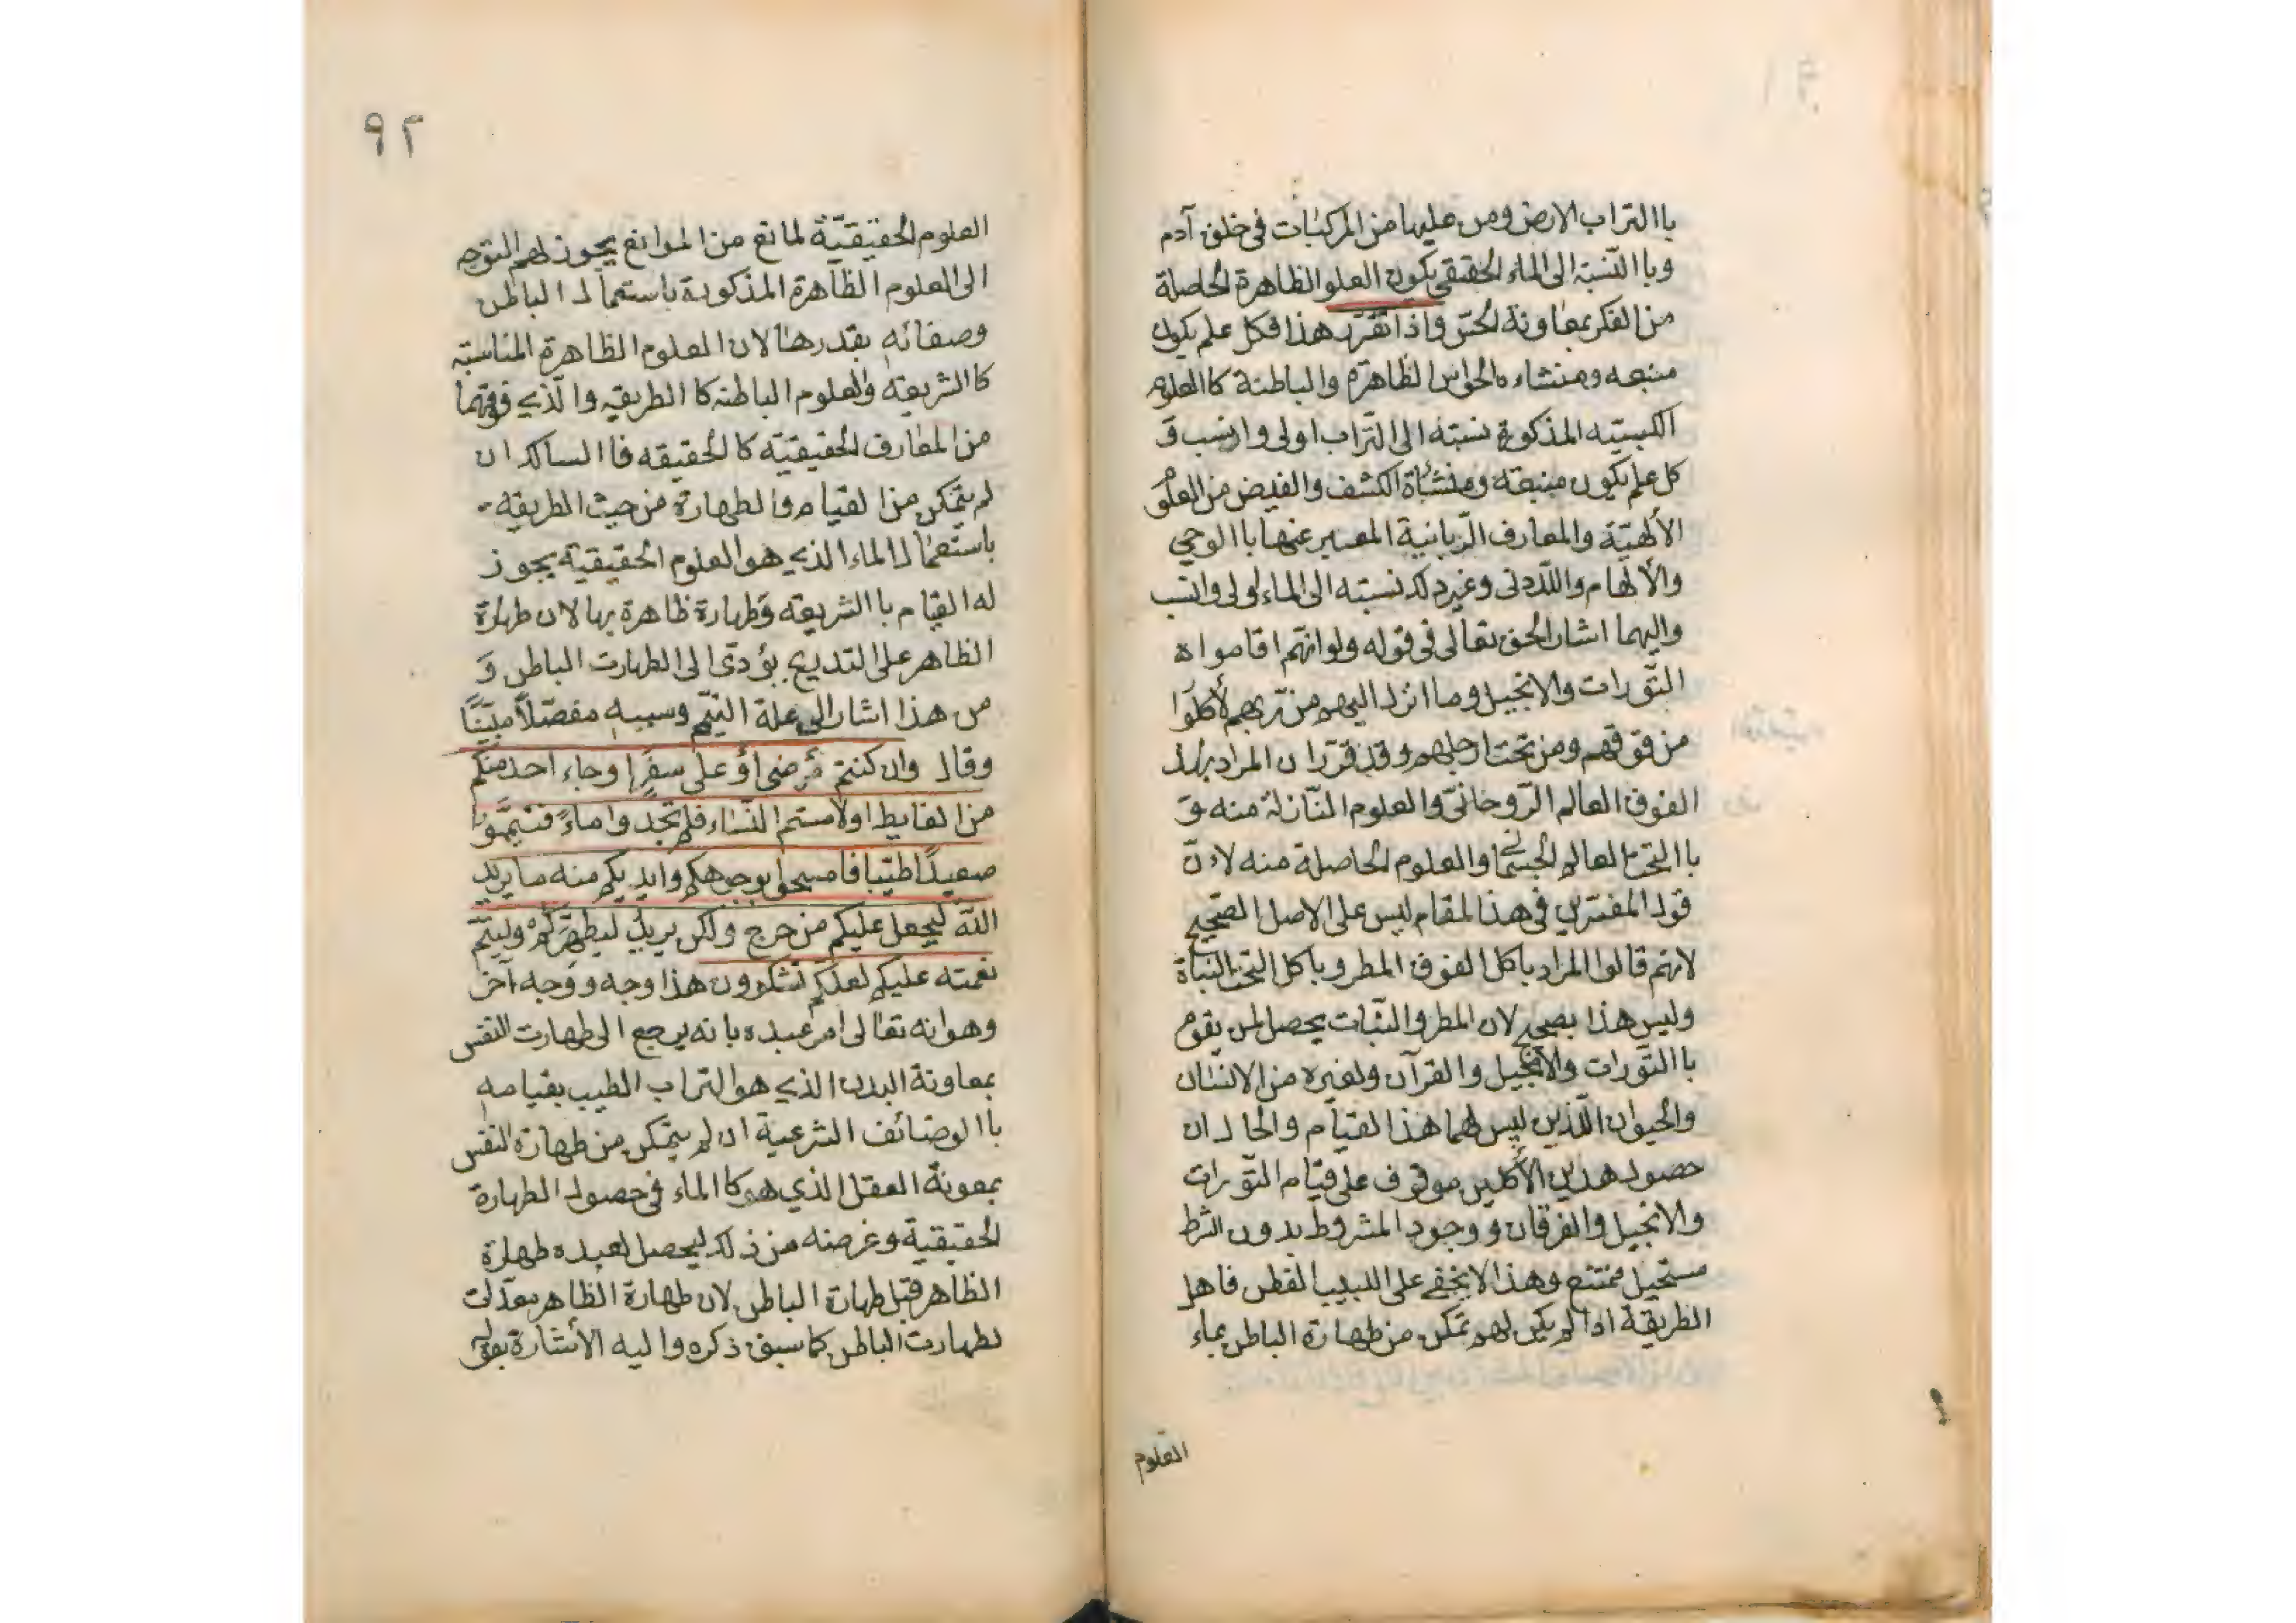 ٩١
باالتراب الارض ومن عليها من المركبات في خلق آدم
وباالنسبة الى الماء الحقيقي يكون العلو الظاهرة الحاصلة
من الفكر بمعاونة الحس واذا تقرّر هذا فكل علم يكون
منبعه ومنشاءه الحواس الظاهرة والباطنة كاالعلوم
الكسبيه المذكورة نسبته الى التراب اولى وانسب وَ
كل علم يكون منبعه ومنشأة الكشف والفيض من العلوم
الألهيّة والمعارف الرّبانية المعبر عنها باالوحي
والألهام واللّدنى وغير ذلك نسبته الى الماء اولى وانسب
واليهما اشار الحق تعالى في قوله ولوانّهم اقاموا ه
التّورات والانجيل وما انزل اليهم من رّبهم لأكلوا
من فوقهم ومن تحت ارجلهم وقد قرّر ان المراد بهذ
الفوق العالم الرّوحانىّ والعلوم النّازلة منه وَ
باالتحت العالم الجسمانى والعلوم الحاصلة منه لانّ
قول المفسّرين في هذا المقام ليس على الاصل الصّحيح
لانهم قالوا المراد باكل الفوق المطر وباكل التحت النباة
وليس هذا بصحيح لان المطر والنبّات يحصل لمن يقوم
باالتّورات والأنجيل والقرآن ولغيره من الانسان
والحيوان اللّذين ليس لهما هذا القيام والحال ان
حصول هذين الأكلين موقوف على قيام التّورات
والانجيل والفرقان ووجود المشروط بدون الشرط
مستحيل ممتنع وهذا لايخفى على اللبيب الفطن فاهل
الطريقة اذا لم يكن لهم تمكن من طهارة الباطن بماء
العلوم
٩٢
العلوم الحقيقيّة لمانع من الموانع يجوز لهم التوجه
الى العلوم الظاهرة المذكورة باستعمال الباطن
وصفائه بقدرها لان العلوم الظاهرة المناسبته
كاالشريعة والعلوم الباطنه كا الطريقه والّذي فوقهما
من المعارف الحقيقيّة كا الحقيقه فاالسالك ان
لم يتمكن من القيام والطهارة من حيث الطريقة
باستعمال الماء الذي هو العلوم الحقيقية يجوز
له القيام باالشريعه وطهارة ظاهرة بها لان طهارة
الظاهر على التدريج يؤدّى الى الطهارت الباطن وَ
من هذا اشار الى علة التيمّم وسببه مفصّلاً مبيّنًا
وقال وان كنتم مرضى أو على سفرٍ او جاء احد منكم
من الغايط او لامستم النّساء فلم تجدوا ماءً فتيمّموا
صعيدًا طيّبا فامسحوا بوجوهكم وايديكم منه ما يريد
اللّه ليجعل عليكم من حرج ولكن يريد ليطهّركم وليتمّ
نعمته عليكم لعلكم تشكرون هذا وجه ووجه آخر
وهو انه تعالى امر عبده بانه يرجع الى طهارت النفس
بمعاونة البدن الذي هو التراب الطيب بقيامه
باالوضائف الشرعية ان لم يتمكن من طهارة النفس
بمعونة العقل الذي هو كاالماء في حصول الطهارة
الحقيقية وغرضه من ذلك ليحصل لعبده طهارة
الظاهر قبل طهارة الباطن لان طهارة الظاهر معدّات
لطهارت الباطن كما سبق ذكره واليه الأشارة بقوله